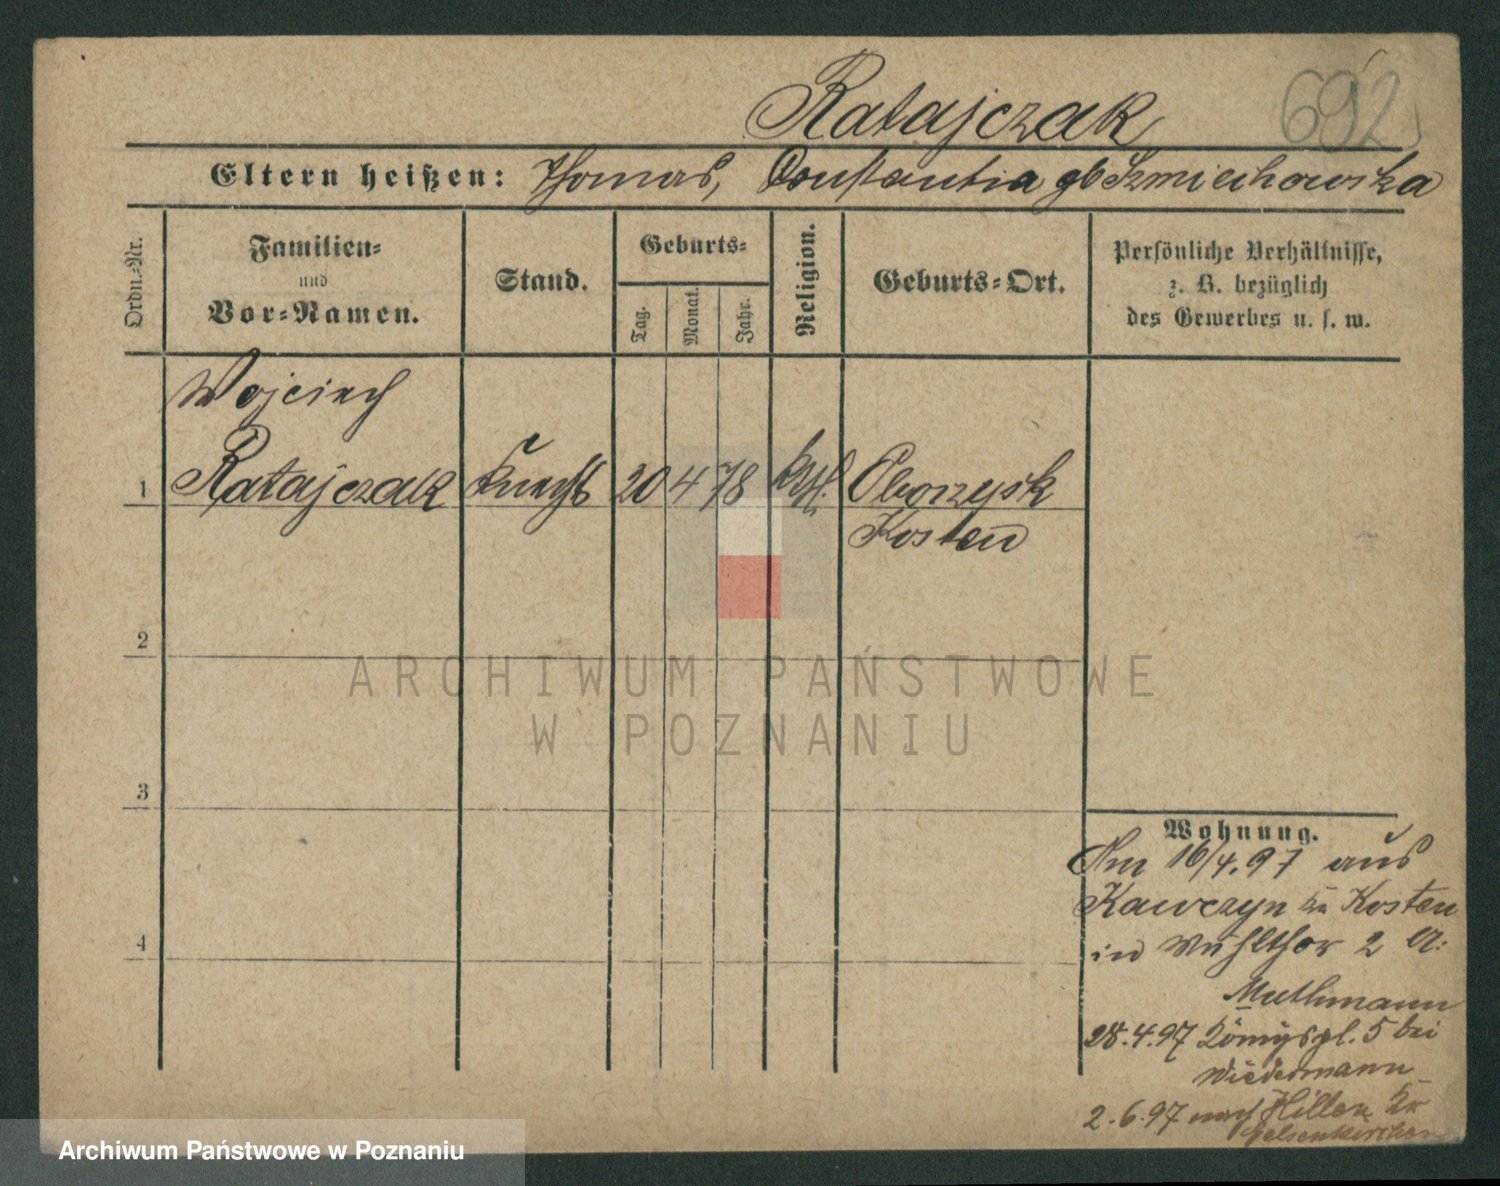 692
Ratajczak
Eltern heißen: Thomas, Constantia gb Szmiechowska
Ordn.-Nr.
Familien-
und
Vor-Namen.
Stand.
Geburts-
Tag.
Monat.
Jahr.
Religion.
Geburts-Ort.
Persönliche Verhältnisse,
z. B. bezüglich
des Gewerbes u. s. w.
Wojciech
1 Ratajczak Knecht 20 4 78 kth. Oborzysk
Kosten
2
3
4
Wohnung.
Am 16/4.97 aus
Kawczyn Kr Kosten
in Mühlthor 2 a.
Muthmann
28.4.97 Königspl. 5 bei
Wiedermann
2.6.97 nach Hillen Kr
Gelsenkirchen
ARCHIWUM PAŃSTWOWE
W POZNANIU
Archiwum Państwowe w Poznaniu